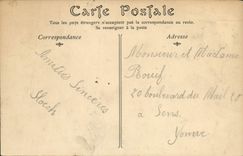 Carte Postale
Tous les pays étrangers n'acceptent pas la correspondance au recto.
Se renseigner à la poste
Correspondance
Adresse
Amitiés Sincères
Monsieur et Madame
20 boulevard du Mail 20
à Sens
Yonne